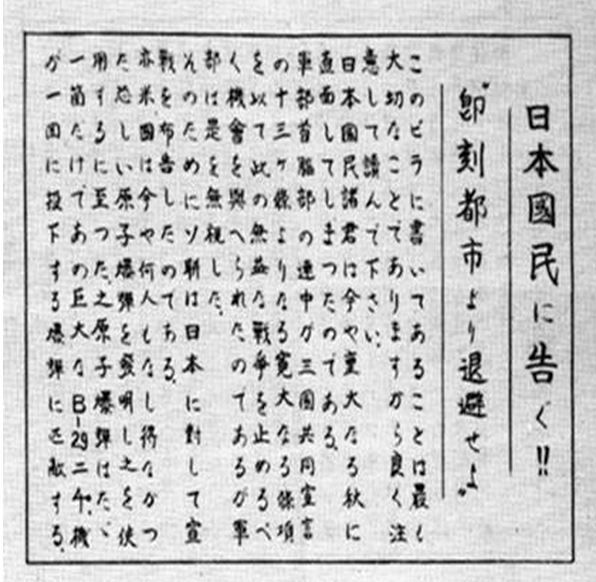 日本國民に告ぐ!!
"即刻都市より退避せよ"
このビラに書いてあることは最も
大切なことでありますから良く注
意して讀んで下さい。
日本國民諸君は今や重大なる秋に
直面してしまつたのである。
軍部首腦部の連中が三國共同宣言
の十三ヶ條よりなる寛大なる條項
を以て此の無益な戰争を止めるべ
く機會を與へられたのであるが軍
部は是を無視した。
そのためにソ聯は日本に對して宣
戰を布告したのである。
亦米國は今や何人もなし得なかつ
た恐しい原子爆彈を發明し之を使
用するに至つた。之原子爆彈はたゞ
一箇だけであの巨大なB-29二千機
が一回に投下する爆彈に匹敵する。